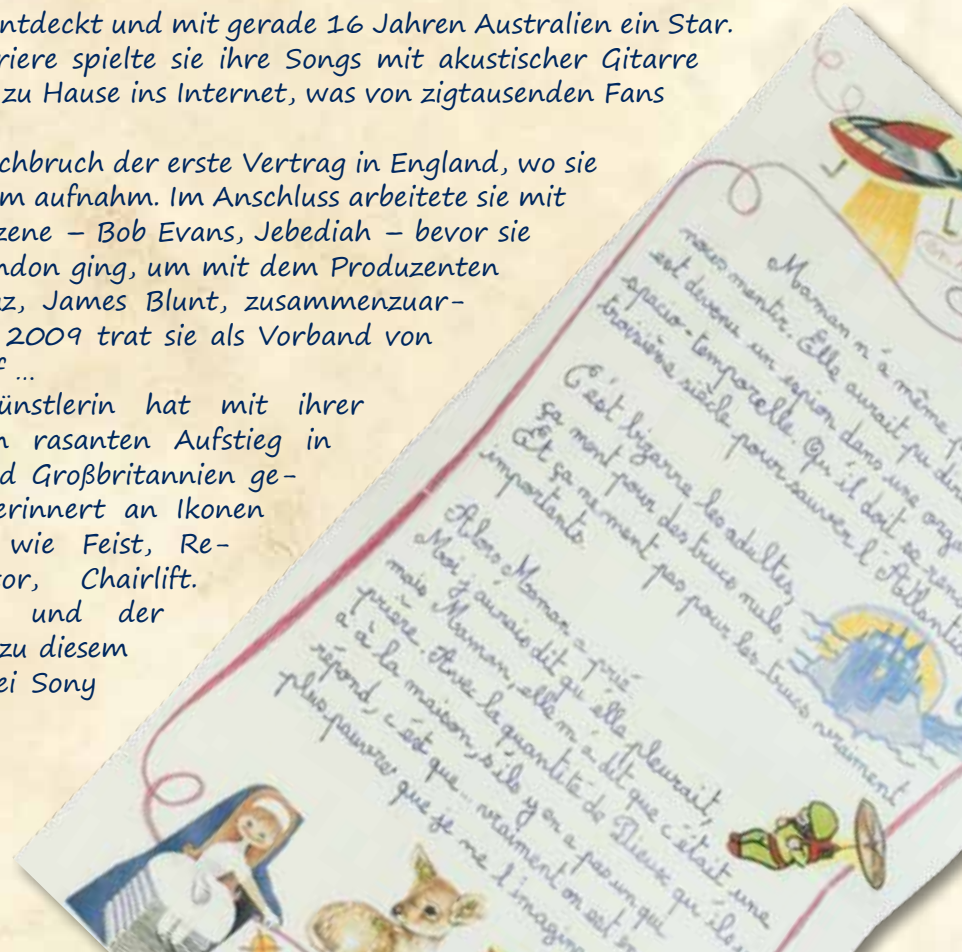 ntdeckt und mit gerade 16 Jahren Australien ein Star.
riere spielte sie ihre Songs mit akustischer Gitarre
zu Hause ins Internet, was von zigtausenden Fans
chbruch der erste Vertrag in England, wo sie
m aufnahm. Im Anschluss arbeitete sie mit
zene – Bob Evans, Jebediah – bevor sie
ndon ging, um mit dem Produzenten
z, James Blunt, zusammenzuar-
2009 trat sie als Vorband von
f ...
ünstlerin hat mit ihrer
n rasanten Aufstieg in
d Großbritannien ge-
erinnert an Ikonen
wie Feist, Re-
tor, Chairlift.
und der
zu diesem
ei Sony
Maman n'a même p
nous mentir. Elle aurait pu dire
est devenu un espion dans une orga
spacio-temporelle. Qu'il doit se ren
troisième siècle pour sauver l'Atlanti
C'est bizarre les adultes,
ça ment pour des trucs nuls.
Et ça ne ment pas pour les trucs vraiment
importants.
Alors Maman a prié.
Moi, j'aurais dit qu'elle pleurait,
mais Maman, elle m'a dit que c'était une
prière. Avec la quantité de Dieux qu'ils
a à la maison, s'ils y en a pas un que
répond, c'est que... vraiment on est
plus pauvres que je ne l'imagin